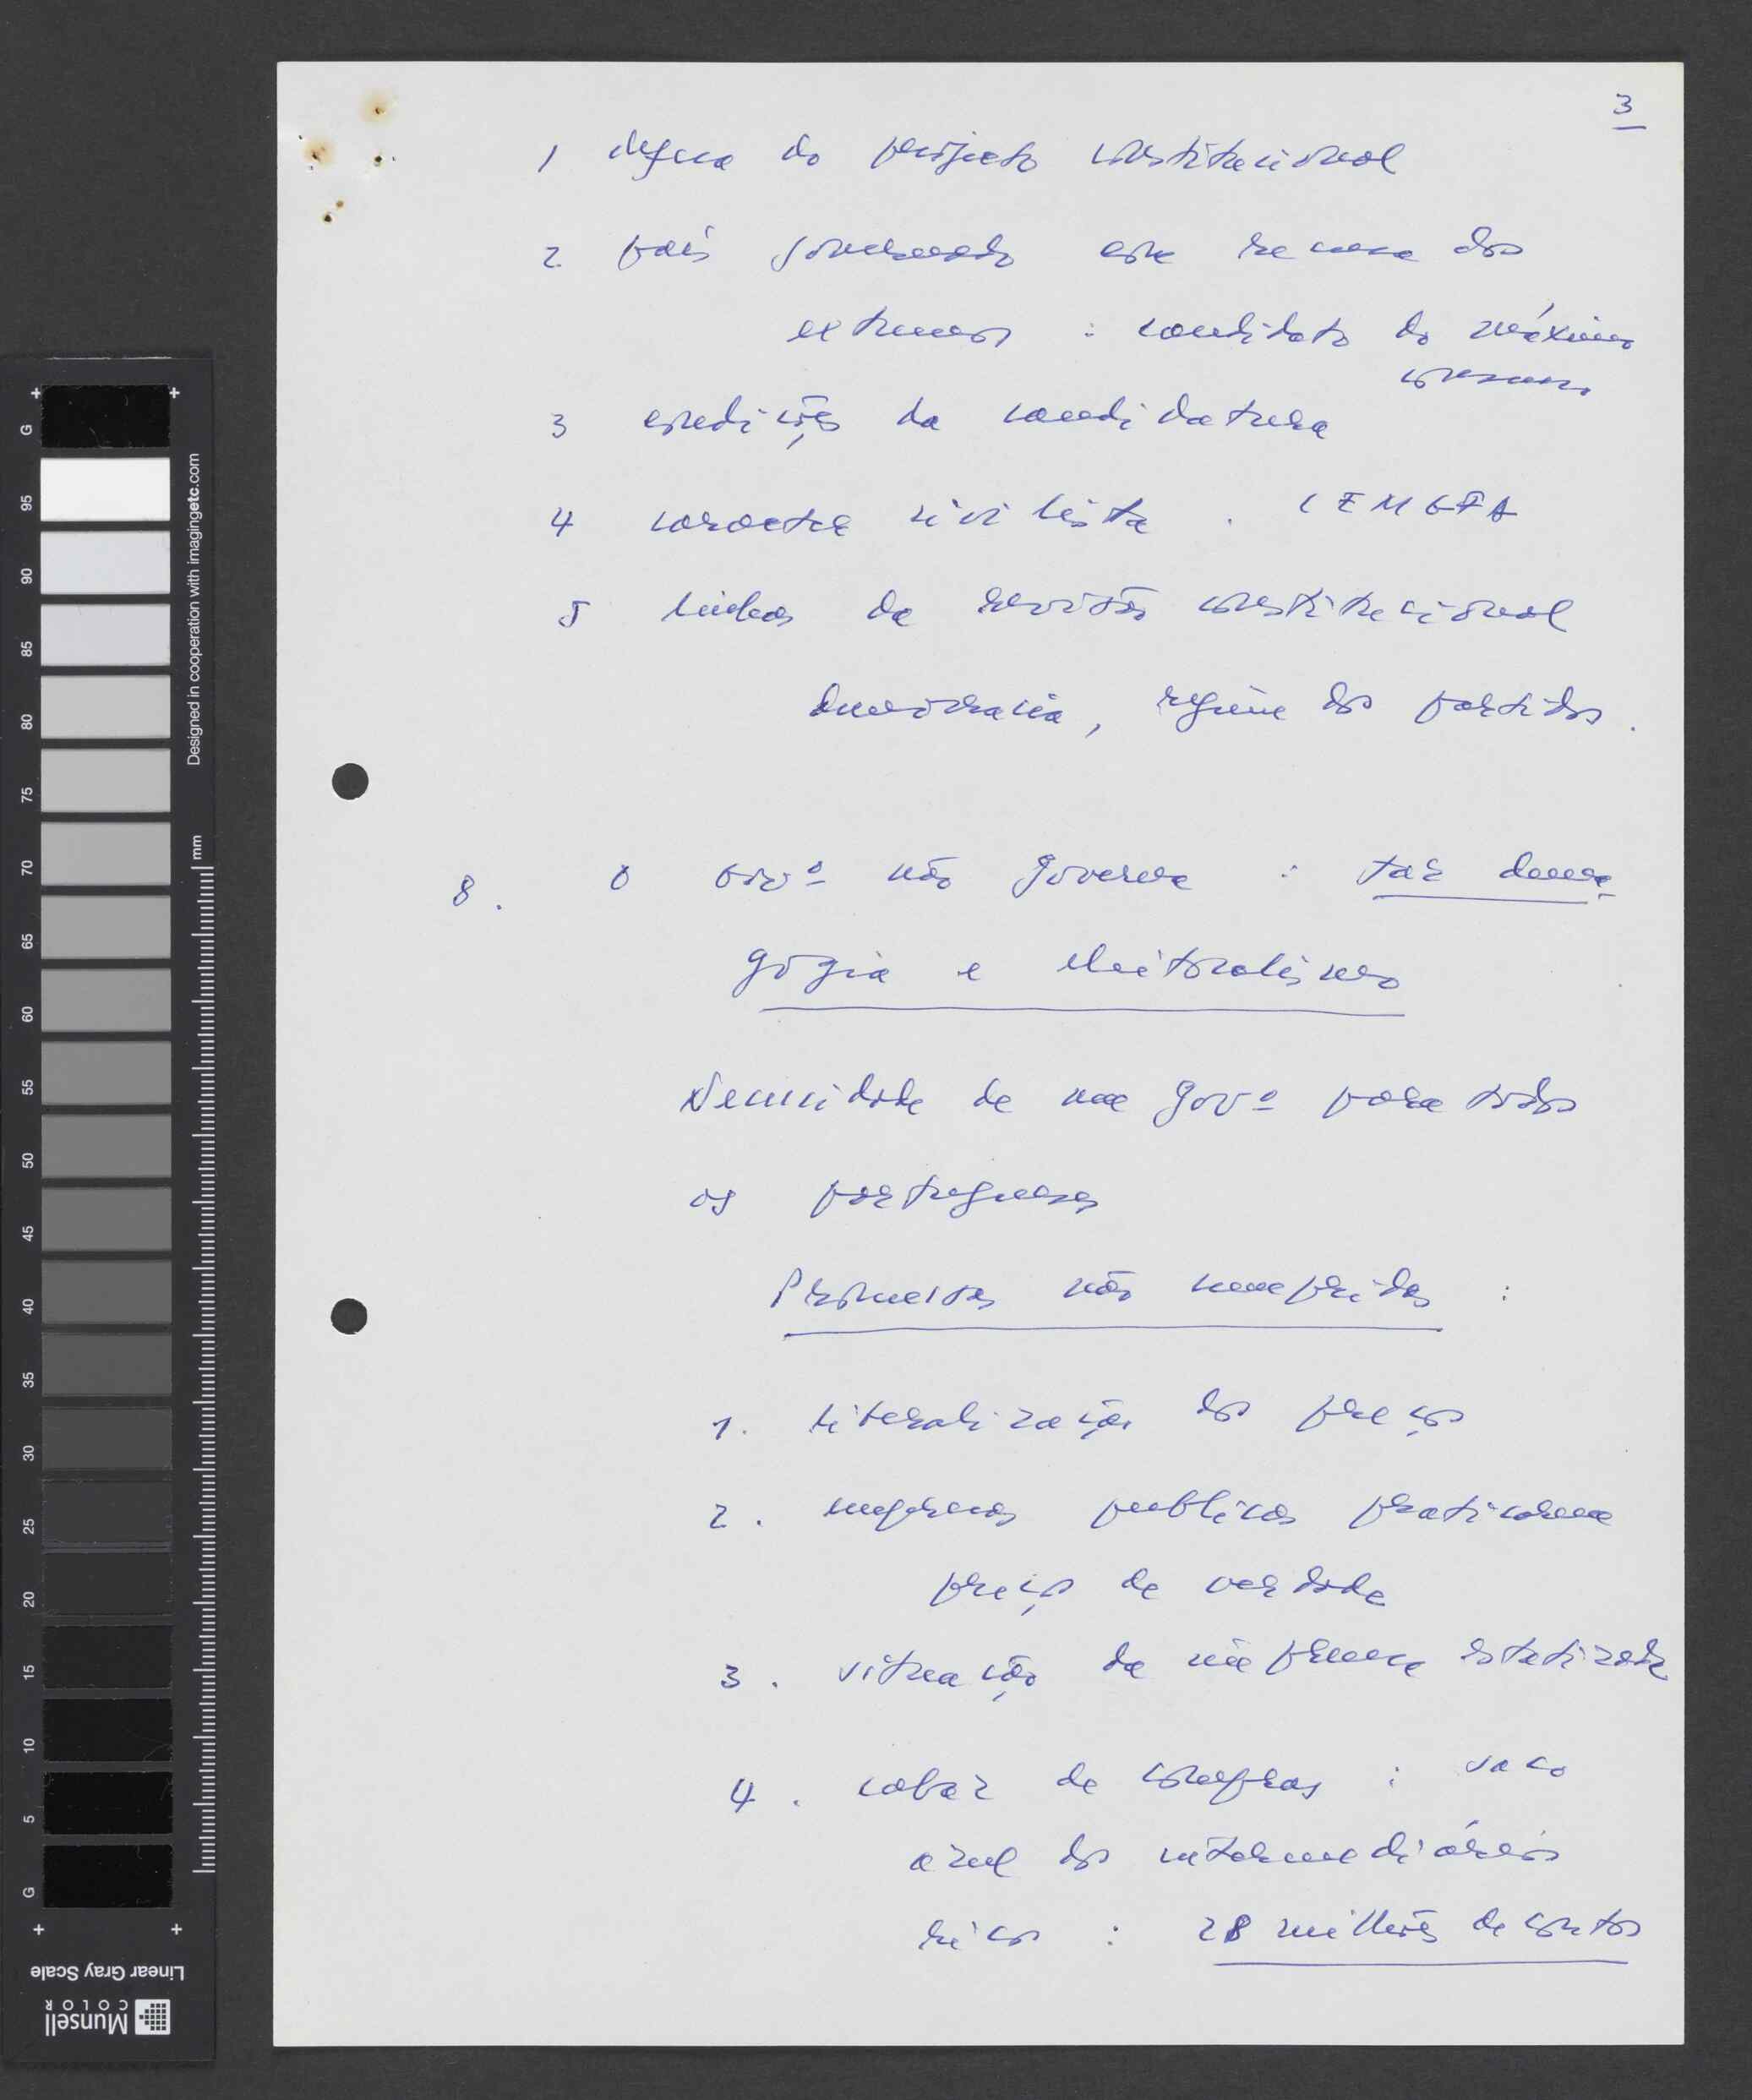 3
1 defesa do projecto constitucional
2. país governado com recusa dos
extremos : candidato do máximo
consenso
3 condições da candidatura
4 caracter civilista . CEMGFA
5 linhas da revisão constitucional
democracia, regime dos partidos.
8. O Govº não governa : faz dema-
gogia e eleitoralismo
Necessidade de um govº para todos
os portugueses
Promessas não cumpridas :
1. liberalização dos preços
2. empresas publicas praticarem
preços de verdade
3. situação da imprensa estatizada
4. cabaz de compras : saco
azul dos intermediários
ricos : 28 milhões de contos
G
95
90
85
80
75
70
65
60
55
50
45
40
35
30
25
20
15
10
5
G
Designed in cooperation with imagingetc.com
mm
Linear Gray Scale
Munsell
COLOR